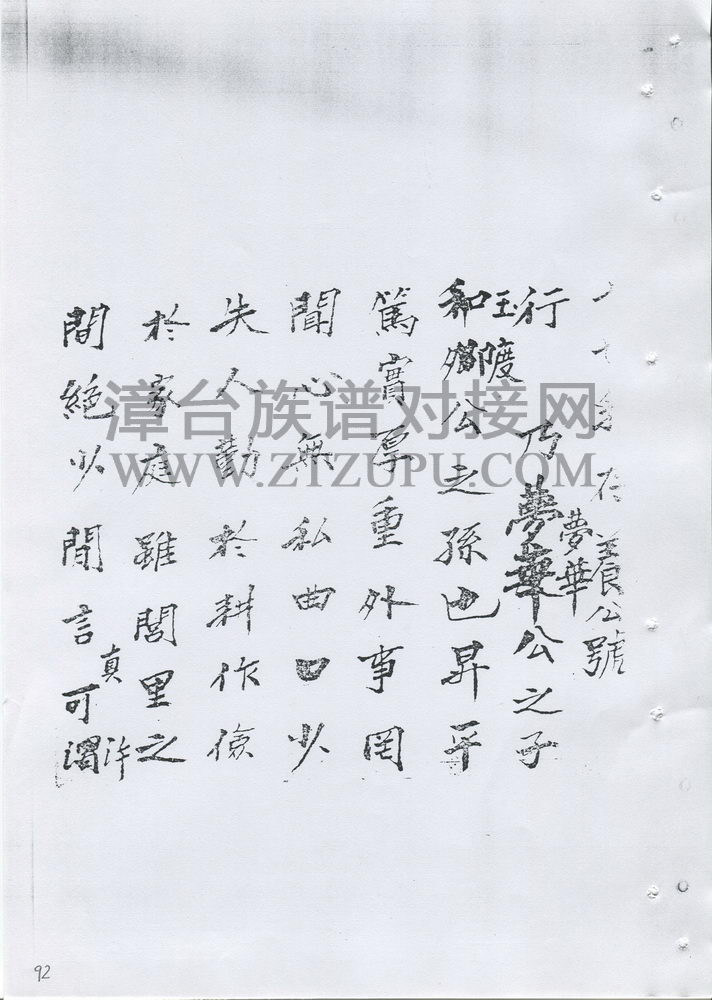 養公號
行乃夢華公之子
夢華
和公之孫也昇平
玉陵
篤實厚重外事罔
聞心無私曲口少
失人勤於耕作儉
於家庭雖閭里之
間絕少閒言可謂
真
許
漳台族谱对接网
WWW.ZTZUPU.COM
92